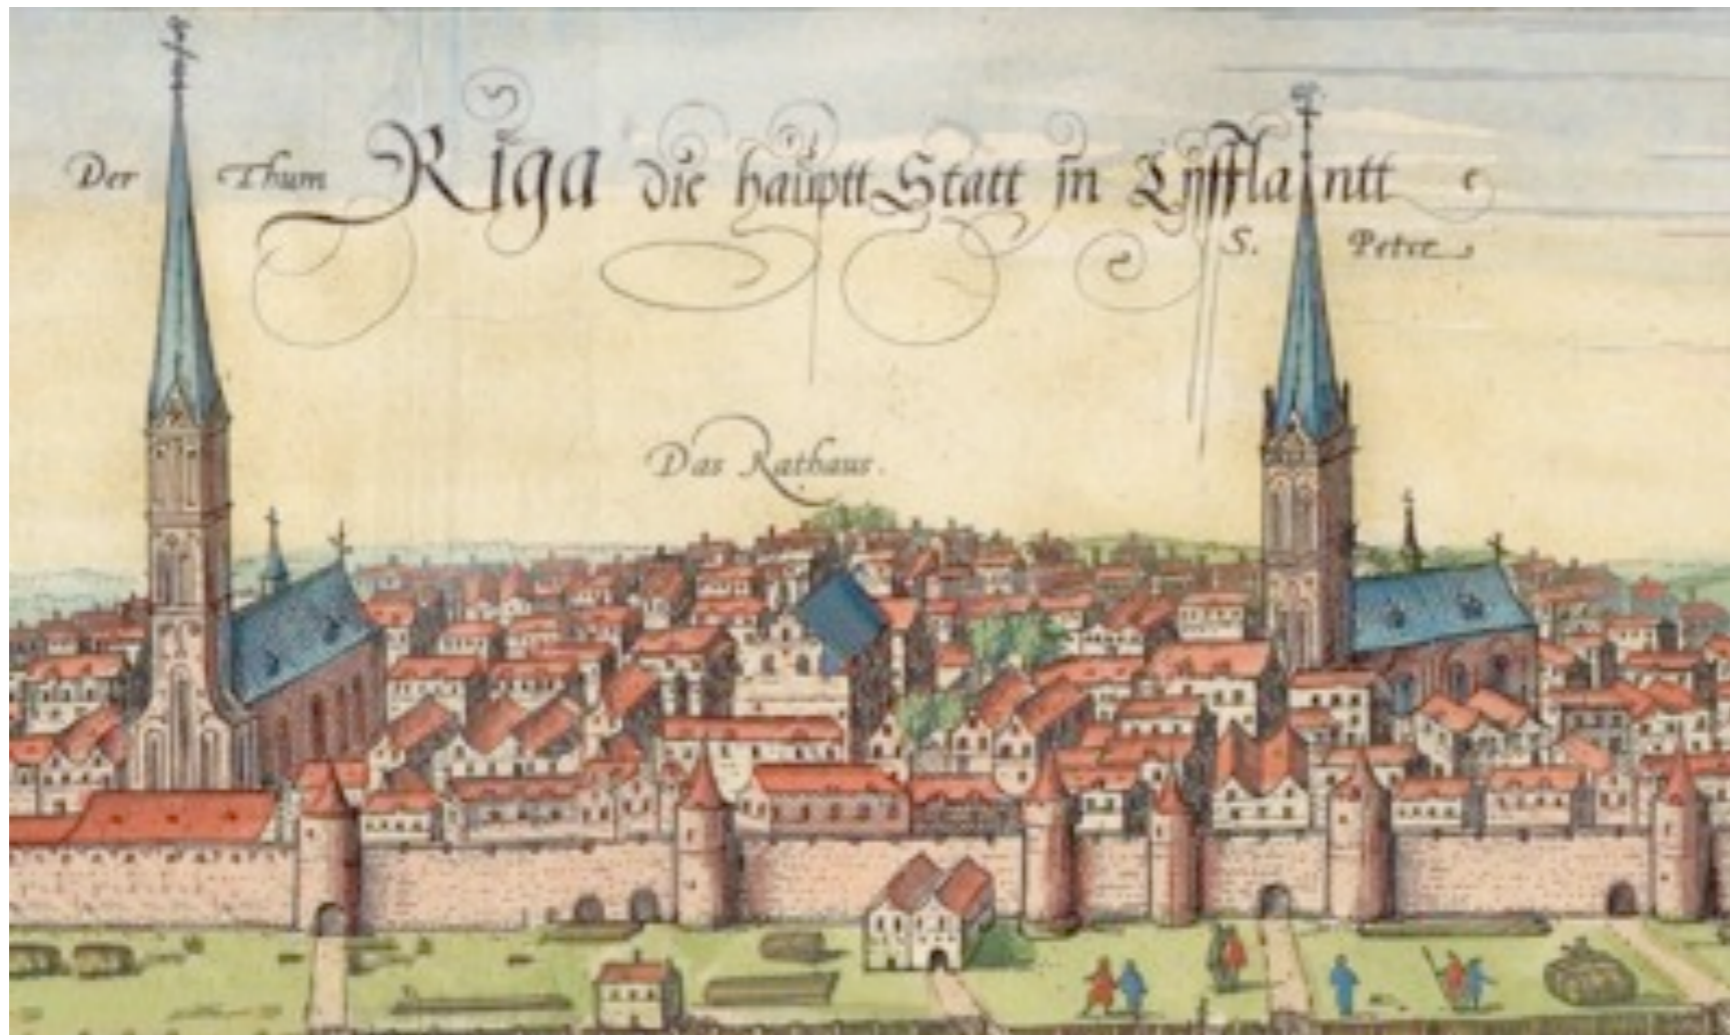 Der Thum
Riga die hauptt Statt in Lyfflantt
S. Peter
Das Rathaus.